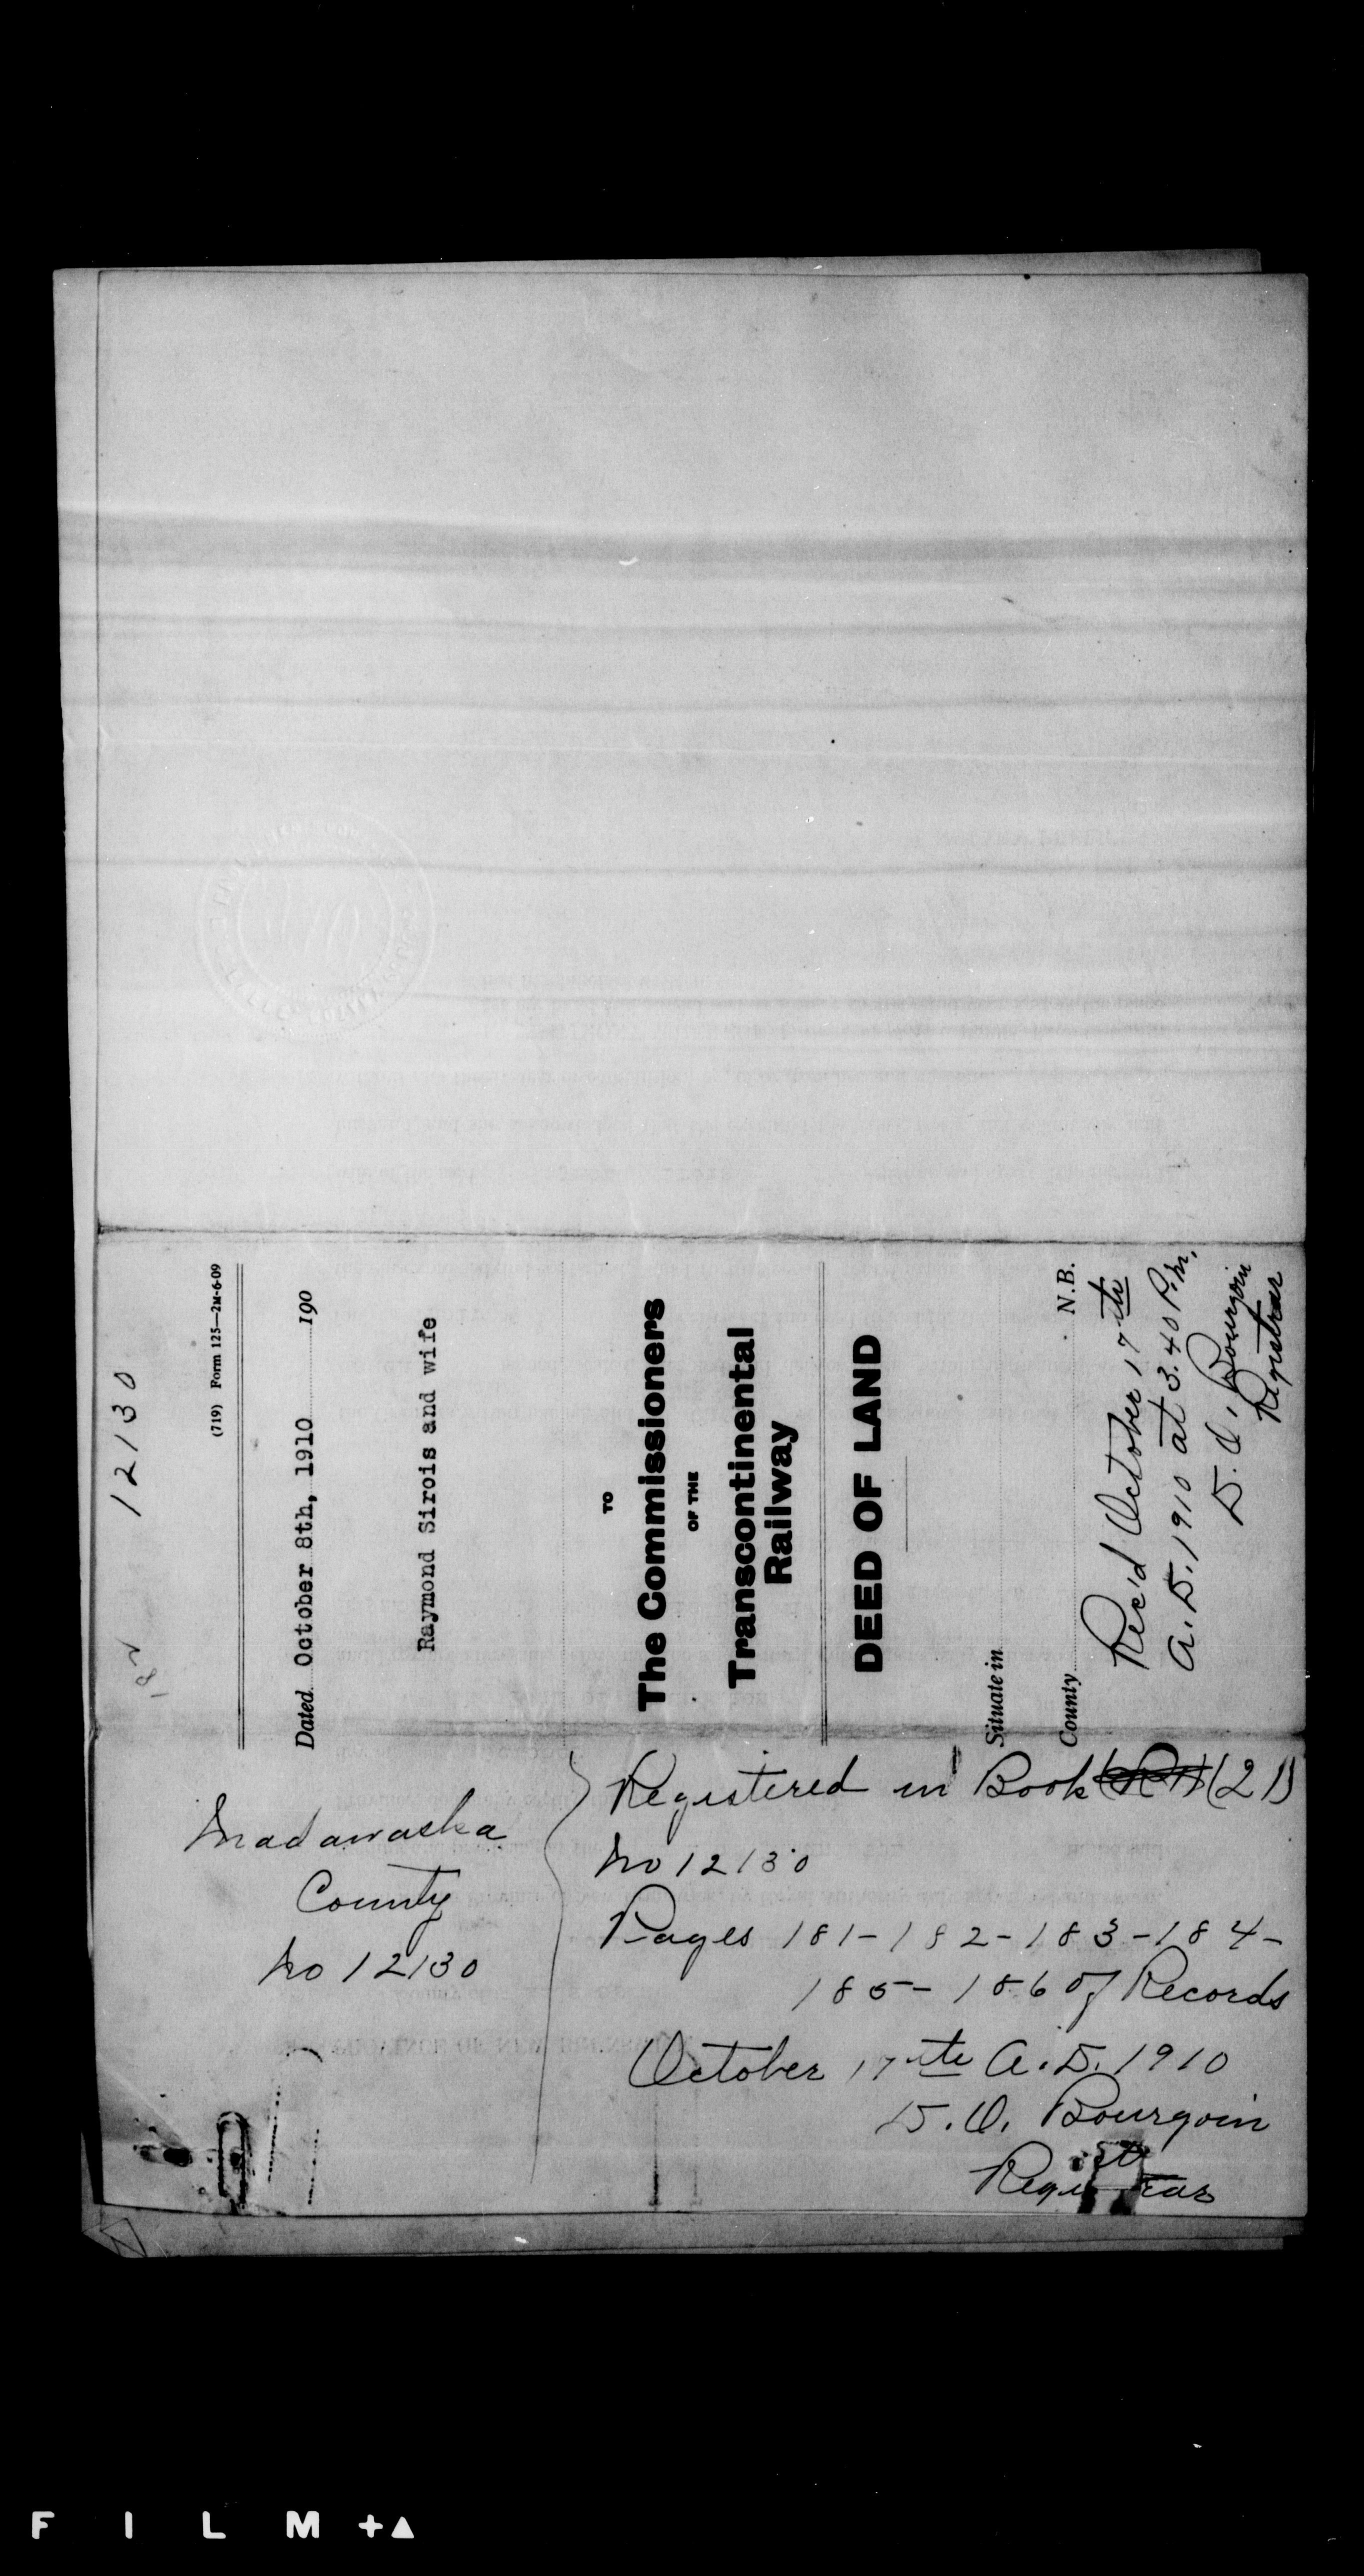 12130
(719) Form 125—2M-6-09
Dated October 8th, 1910 190
Raymond Sirois and wife
TO
The Commissioners
OF THE
Transcontinental
Railway
DEED OF LAND
Situate in
County N.B.
Rec'd October 17th
A.D. 1910 at 3.40 P.M.
D. O. Bourgoin
Registrar
Madawaska
County
No 12130
Registered in Book (21)
No 12130
Pages 181-182-183-184-
185-186 of Records
October 17th A.D. 1910
D. O. Bourgoin
Registrar
FILM